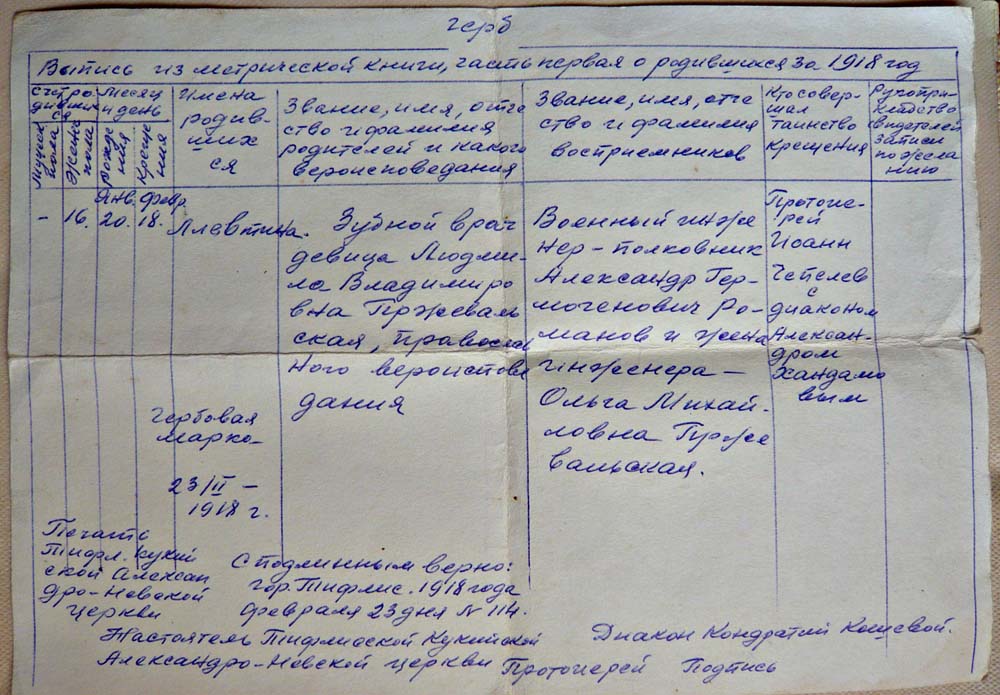 герб
Выпись из метрической книги, часть первая о родившихся за 1918 год
Счет ро-
дивших
ся
Мужск.
пола
Женс.
пола
Месяц
и день
Рожде
ния
Креще
ния
Имена
родив-
ших
ся
Звание, имя, отче
ство и фамилия
родителей и какого
вероисповедания
Звание, имя, отче
ство и фамилия
восприемников
Кто совер-
шал
таинство
крещения
Рукопри-
кладство
свидетелей
записи
по жела-
нию
Янв. Февр.
– 16. 20. 18.
Алевтина.
Зубной врач
девица Людми-
ла Владимиро
вна Пржеваль
ская, православ
ного вероиспове
дания
Военный инже
нер – полковник
Александр Гер-
могенович Ро-
манов и жена
инженера –
Ольга Михай-
ловна Прже
вальская.
Протоие-
рей
Иоанн
Чепелев
с
диаконом
Алексан-
дром
Хандамо
вым
Гербовая
марка-
23/II –
1918 г.
Печать
Тифл. Кукий
ской Алексан
дро-Невской
церкви
С подлинным верно:
гор. Тифлис. 1918 года
февраля 23 дня N 114.
Настоятель Тифлисской Кукийской
Александро-Невской церкви Протоиерей Подпись
Диакон Кондратий Кошевой.